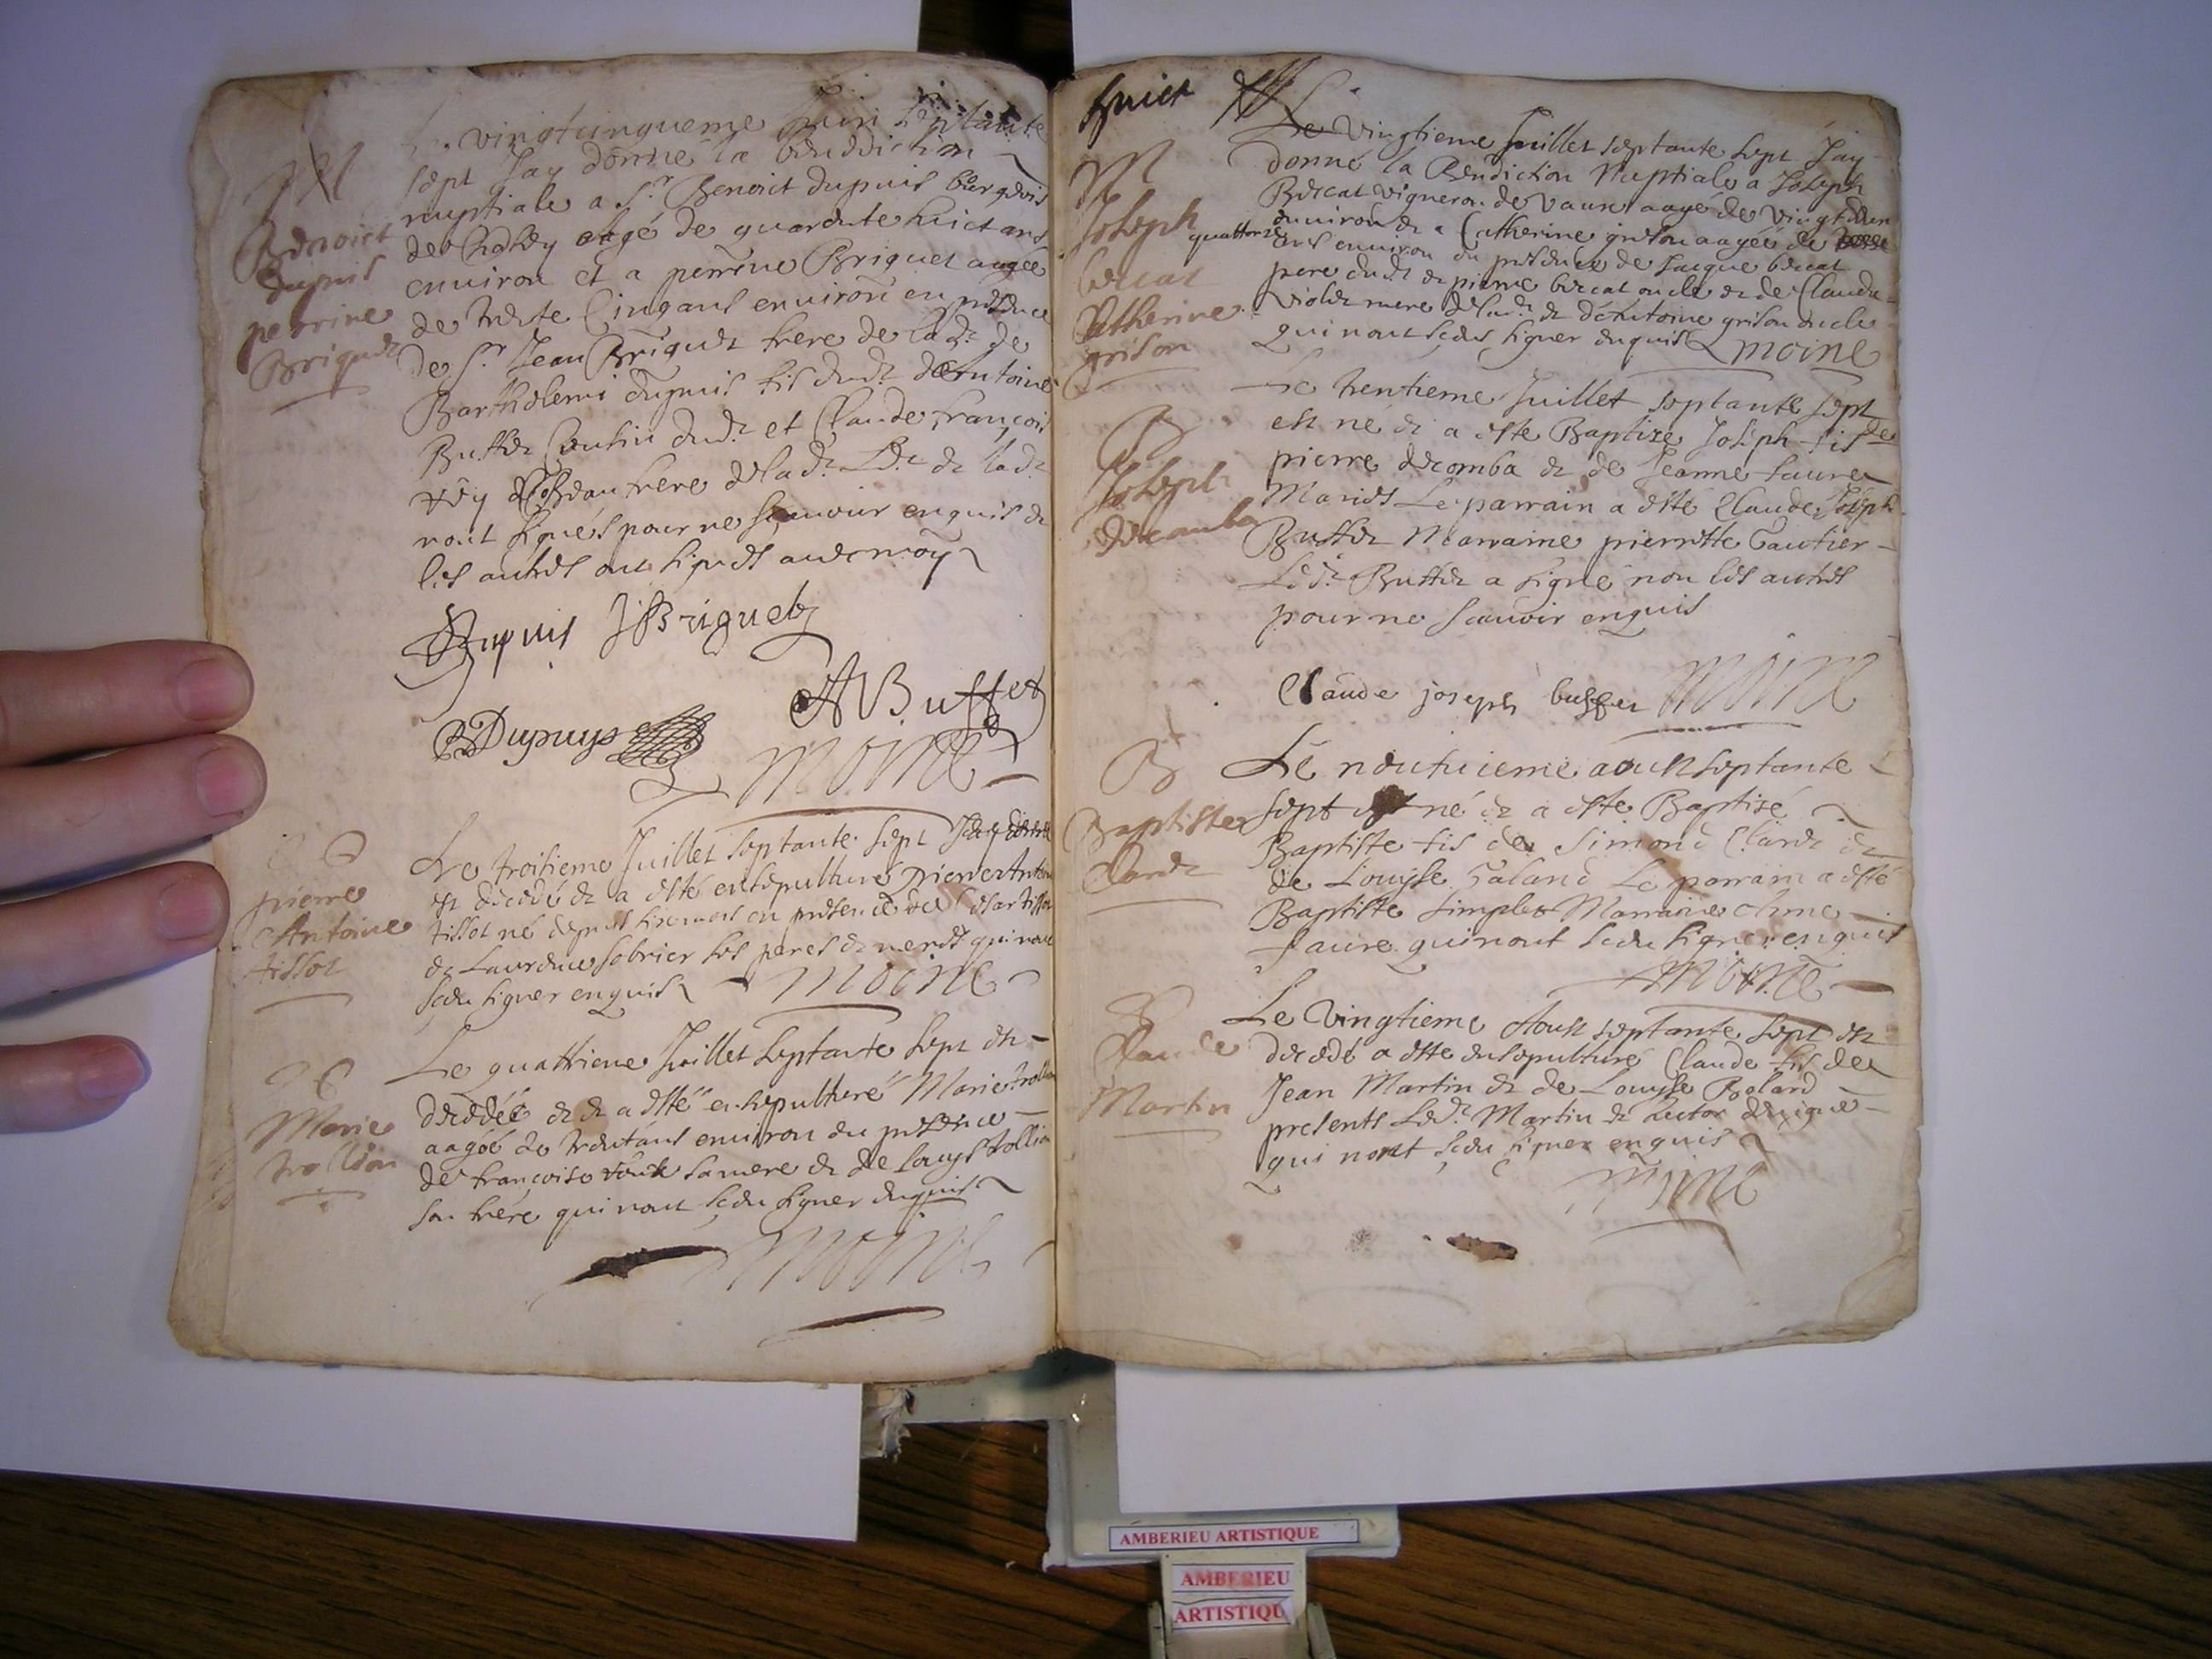 M
Benoict
dupuis
perrine
Briquet
vingtcinqueme Juin septante
sept Jay donné la benediction
nuptiale a Sr Benoict dupuis bourgeois
de aagé de quarente huict ans
environ et a perrine Briquet aagee
de trente Cinq ans environ en presence
de Sr Jean Briquet frere de lade de
Bartholemi dupuis fils dudt dAntoine
Buffet Cousin dudt et Claude François
frere de lade Ledt et lade
nont signés pour ne sçavoir enquis et
les autres ont signes avec moy
Dupuis JBriquet
ABuffet
BDupuys
moine
pierre
Antoine
tissot
Le troisieme Juillet septante sept
est decedé et a esté ensepulturé pierre Antoine
tissot né depuis six mois en presence de Cesar tissot
et Laurence sobrier ses peres et meres qui nont
sceu signer enquis moine
Marie
trollion
Le quattrieme Juillet septante sept est
decedée et a esté ensepulturé Marie trollion
aagée de trente ans environ en presence
de françoise sa mere et de Louys trollion
son frere qui nont sceu signer enquis
moine
huict
M
Joseph
becat
Catherine
grison
Le vingtieme Juillet septante sept Jay
donné la Benediction Nuptiale a Joseph
Becat vigneron de Vaux aagé de vingt deux
environ et a Catherine grison aagée de
quattorze ans environ en presence de Jacque becat
pere dudt et pierre becat oncle et de Claude
violet mere de ladt et dAntoine grison oncle
qui nont sceus signer enquis moine
B
Joseph
decomba
Le trentieme Juillet septante sept
est né et a este Baptize Joseph fis de
pierre decomba et de Jeanne faure
Mariés Le parrain a esté Claude Joseph
Buffet Marraine pierrette Gautier
Ledt Buffet a signé non les autres
pour ne scauoir enquis
Claude joseph buffet moine
B
Baptiste
Claret
Le neufuieme aoust septante
sept est né et a este Baptisé
Baptiste fis de Simond Claret et
de Louyse Galand Le parrain a esté
Baptiste simplet Marraine Anne
faure qui nont sceu signer enquis
moine
Claude
Martin
Le vingtieme Aoust septante sept est
decedé a este ensepulturé Claude fis de
Jean Martin et de Louyse Bolard
presents Ledt Martin et
qui nont sceu signer enquis
moine
AMBERIEU ARTISTIQUE
AMBERIEU
ARTISTIQU